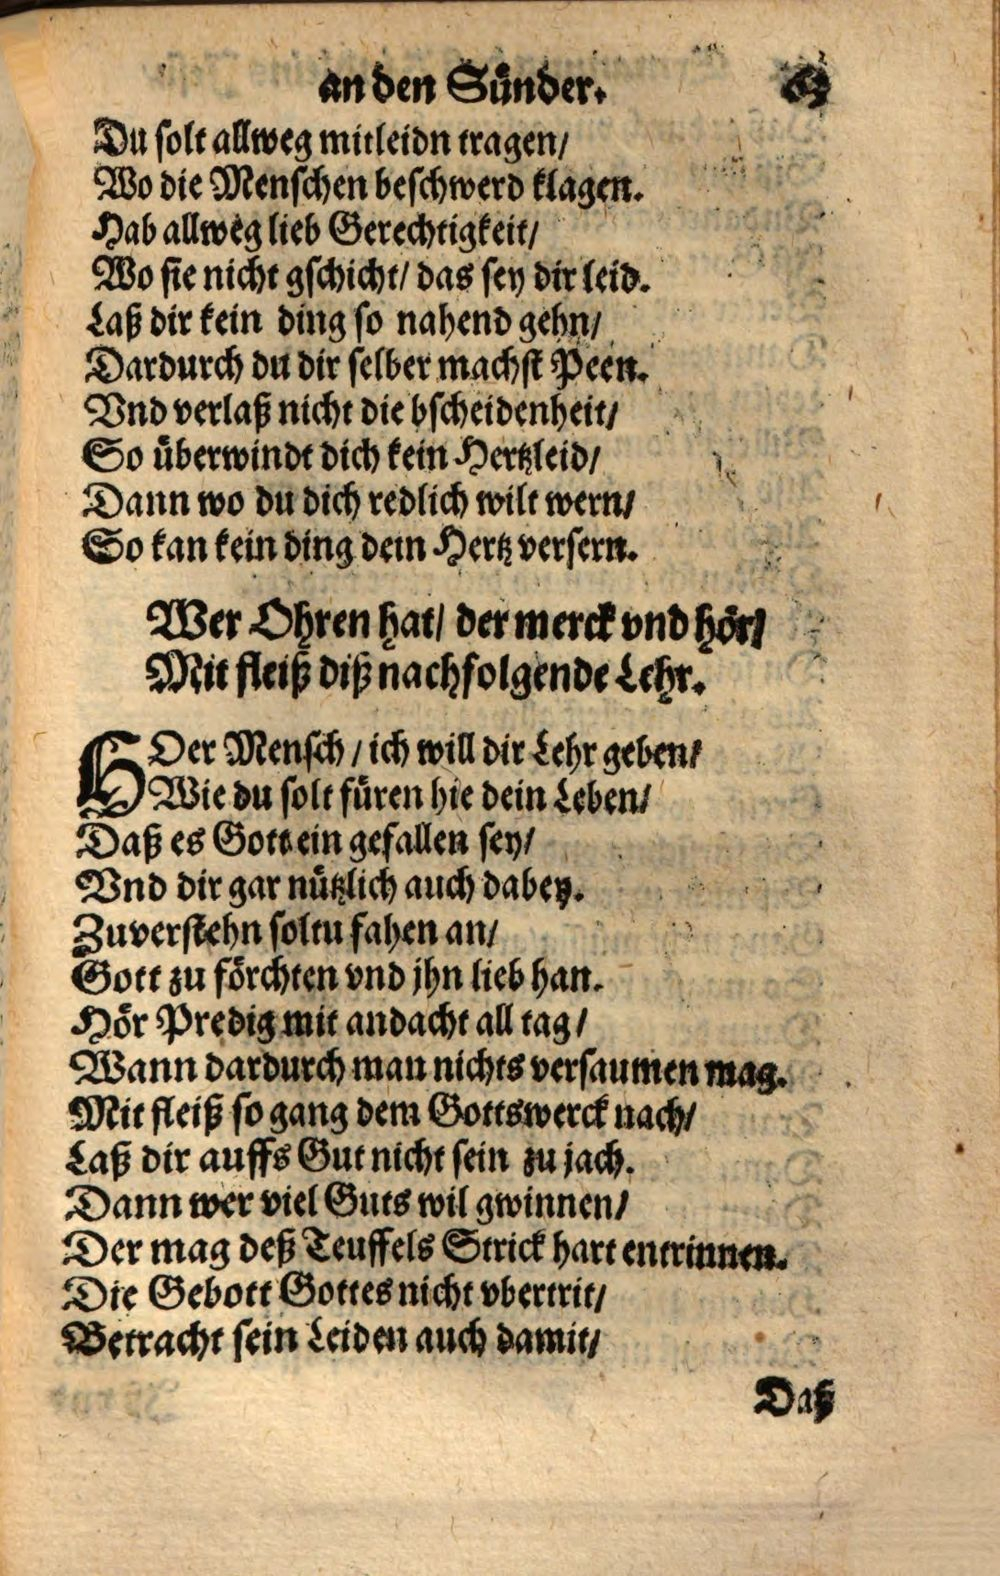 an den Sünder. 63
Du solt allweg mitleidn tragen/
Wo die Menschen beschwerd klagen.
Hab allweg lieb Gerechtigkeit/
Wo sie nicht gschicht/ das sey dir leid.
Laß dir kein ding so nahend gehn/
Dardurch du dir selber machst Peen.
Vnd verlaß nicht die bscheidenheit/
So überwindt dich kein Hertzleid/
Dann wo du dich redlich wilt wern/
So kan kein ding dein Hertz versern.
Wer Ohren hat/ der merck vnd hör/
Mit fleiß diß nachfolgende Lehr.
HOer Mensch / ich will dir Lehr geben/
Wie du solt füren hie dein Leben/
Daß es Gott ein gefallen sey/
Vnd dir gar nützlich auch dabey.
Zuverstehn soltu fahen an/
Gott zu förchten vnd jhn lieb han.
Hör Predig mit andacht all tag/
Wann dardurch man nichts versaumen mag.
Mit fleiß so gang dem Gottswerck nach/
Laß dir auffs Gut nicht sein zu jach.
Dann wer viel Guts wil gwinnen/
Der mag deß Teuffels Strick hart entrinnen.
Die Gebott Gottes nicht vbertrit/
Betracht sein Leiden auch damit/
Daß